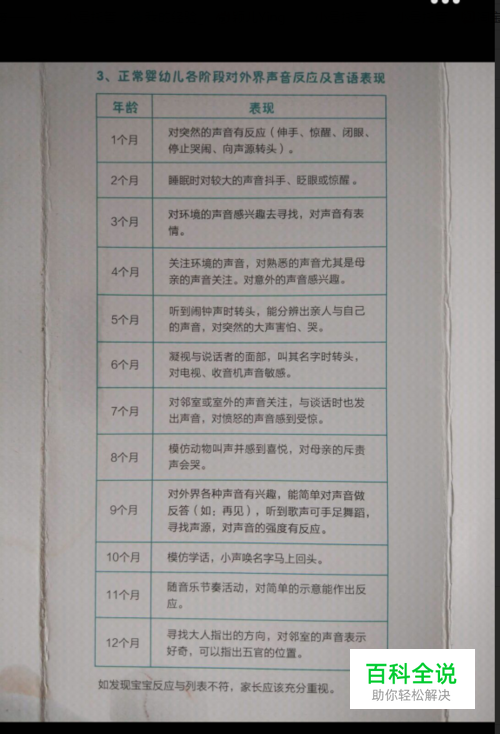 3、正常婴幼儿各阶段对外界声音反应及言语表现
年龄 表现
1个月 对突然的声音有反应（伸手、惊醒、闭眼、
停止哭闹、向声源转头）。
2个月 睡眠时对较大的声音抖手、眨眼或惊醒。
3个月 对环境的声音感兴趣去寻找，对声音有表
情。
4个月 关注环境的声音，对熟悉的声音尤其是母
亲的声音关注。对意外的声音感兴趣。
5个月 听到闹钟声时转头，能分辨出亲人与自己
的声音，对突然的大声害怕、哭。
6个月 凝视与说话者的面部，叫其名字时转头，
对电视、收音机声音敏感。
7个月 对邻室或室外的声音关注，与谈话时也发
出声音，对愤怒的声音感到受惊。
8个月 模仿动物叫声并感到喜悦，对母亲的斥责
声会哭。
9个月 对外界各种声音有兴趣，能简单对声音做
反答（如：再见），听到歌声可手足舞蹈，
寻找声源，对声音的强度有反应。
10个月 模仿学话，小声唤名字马上回头。
11个月 随音乐节奏活动，对简单的示意能作出反
应。
12个月 寻找大人指出的方向，对邻室的声音表示
好奇，可以指出五官的位置。
如发现宝宝反应与列表不符，家长应该充分重视。
百科全说
助你轻松解决